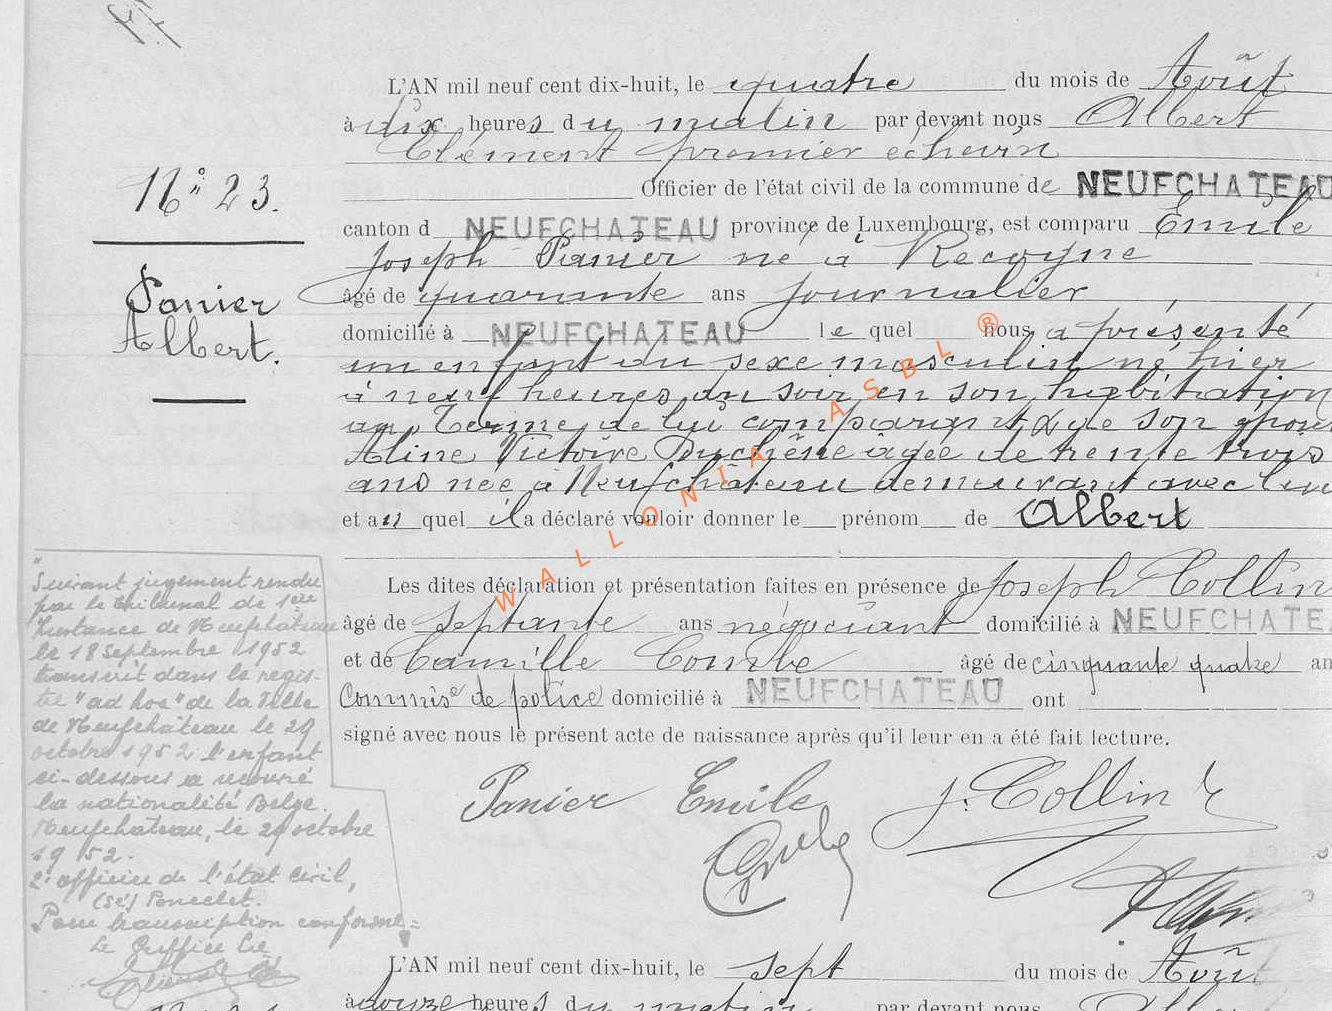 L'AN mil neuf cent dix-huit, le quatre du mois de Août
à dix heures du matin par devant nous Albert
Clément premier échevin
Officier de l'état civil de la commune de NEUFCHATEAU
canton d NEUFCHATEAU province de Luxembourg, est comparu Emile
Joseph Panier né à Recogne
âgé de quarante ans journalier
domicilié à NEUFCHATEAU le quel nous a présenté
un enfant du sexe masculin né hier
à neuf heures du soir en son habitation
au Terme, de lui comparant & de son épouse
Aline Victoire Duchêne âgée de trente trois
ans née à Neufchâteau demeurant avec lui
et au quel il a déclaré vouloir donner le prénom de Albert
Les dites déclaration et présentation faites en présence de Joseph Collin
âgé de septante ans négociant domicilié à NEUFCHATEA
et de Camille Combe âgé de cinquante quatre an
Commisre de police domicilié à NEUFCHATEAU ont
signé avec nous le présent acte de naissance après qu'il leur en a été fait lecture.
Panier Emile J. Collin
No 23.
Panier
Albert.
"Suivant jugement rendu
par le tribunal de 1ère
Instance de Neufchâteau
le 18 Septembre 1952
transcrit dans le regis-
tre "ad hoc" de la Ville
de Neufchâteau le 29
octobre 1952 l'enfant
ci-dessous a recouvré
la nationalité Belge.
Neufchâteau, le 29 octobre
1952.
L'officier de l'état civil,
(sé) Poncelet.
Pour transcription conforme:
Le Greffier
L'AN mil neuf cent dix-huit, le sept du mois de Août
à douze heures du matin par devant nous
WALLONIA ASBL ®